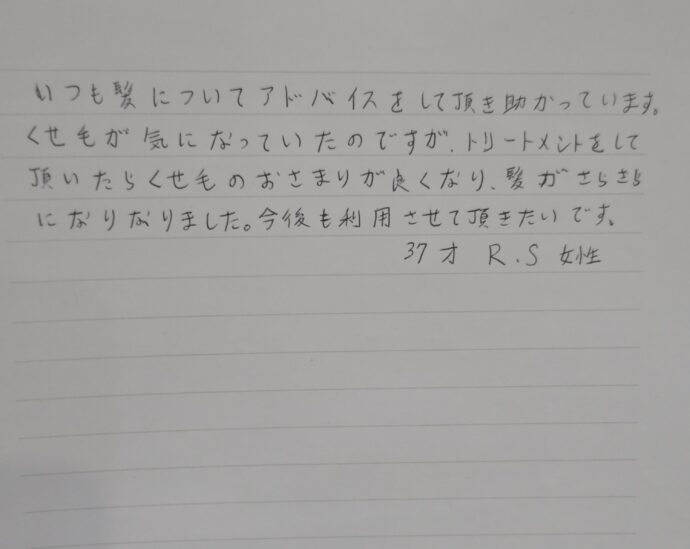 いつも髪についてアドバイスをして頂き助かっています。
くせ毛が気になっていたのですが、トリートメントをして
頂いたらくせ毛のおさまりが良くなり、髪がさらさら
になりなりました。今後も利用させて頂きたいです。
37才 R.S 女性